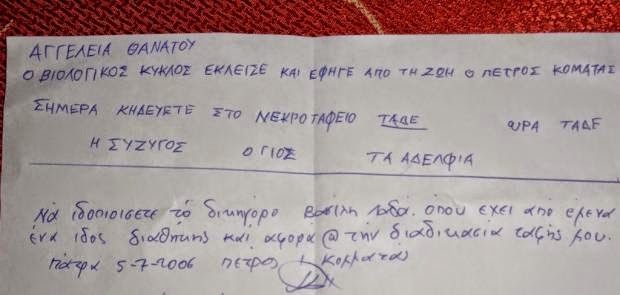 ΑΓΓΕΛΕΙΑ ΘΑΝΑΤΟΥ
Ο ΒΙΟΛΟΓΙΚΟΣ ΚΥΚΛΟΣ ΕΚΛΕΙΣΕ ΚΑΙ ΕΦΗΓΕ ΑΠΟ ΤΗ ΖΩΗ Ο ΠΕΤΡΟΣ ΚΟΜΑΤΑΣ
ΣΗΜΕΡΑ ΚΗΔΕΥΕΤΕ ΣΤΟ ΝΕΚΡΟΤΑΦΕΙΟ ΤΑΔΕ ΩΡΑ ΤΑΔΕ
Η ΣΥΖΥΓΟΣ Ο ΓΙΟΣ ΤΑ ΑΔΕΛΦΙΑ
Νά ιδοποιοισετε τό δικηγόρο Βασιλη όπου εχει από εμενα
ένα ιδος διαθηκης και αφορα @ τήν διαδικασια ταφής μου.
Πάτρα 5-7-2006 πετρος κομματας